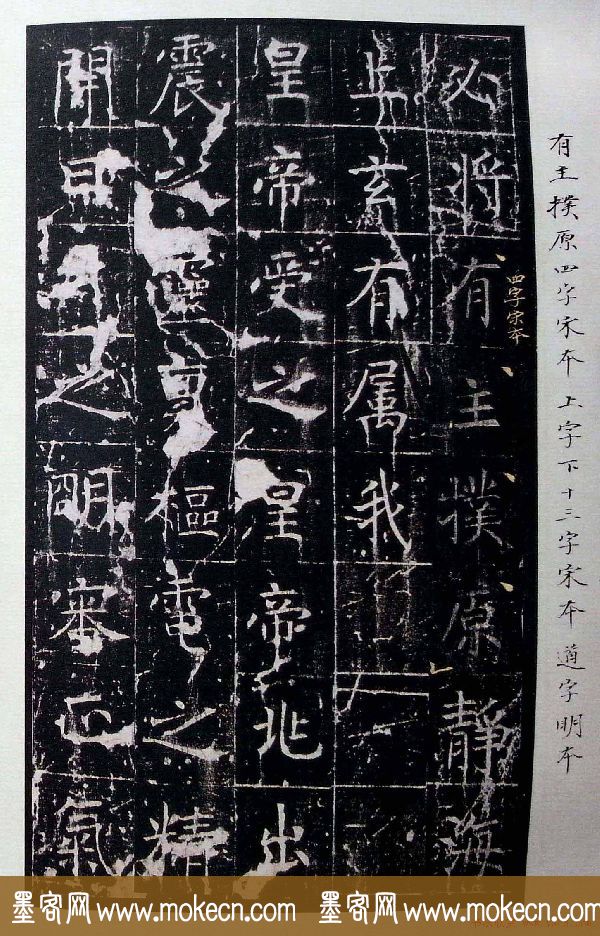 有主撲原四字宋本 上字下十三字宋本 遵字明本
四字宋本
必将有主撲原靜海
上玄有属我
皇帝受之皇帝兆出
震之靈樞電之精
開之明審正氣
墨客网 www.mokecn.com 墨客网 www.mokecn.com